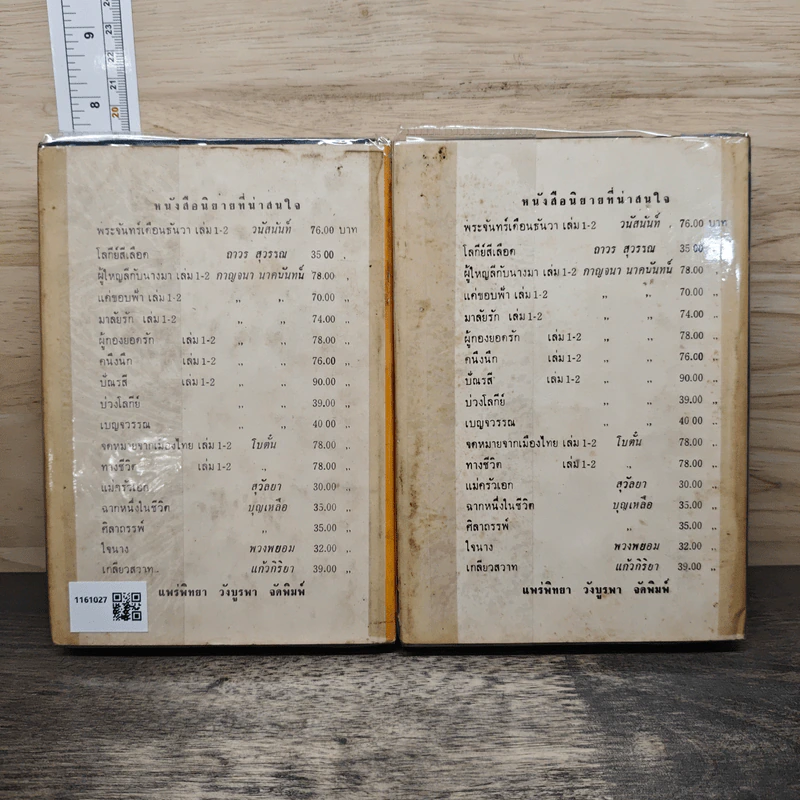 9
8
24
23
22
21
20
หนังสือนิยายที่น่าสนใจ
พระจันทร์เดือนธันวา เล่ม 1-2 วนัสนันท์ 76.00 บาท
โลกีย์สีเลือด ถาวร สุวรรณ 35 00 ,,
ผู้ใหญ่ลีกับนางมา เล่ม 1-2 กาญจนา นาคนันทน์ 78.00 ,,
แค่ขอบฟ้า เล่ม 1-2 ,, ,, 70.00 ,,
มาลัยรัก เล่ม 1-2 ,, ,, 74.00 ,,
ผู้กองยอดรัก เล่ม 1-2 ,, ,, 78.00 ,,
คนึงนึก เล่ม 1-2 ,, ,, 76.00 ,,
บัณรสี เล่ม 1-2 ,, ,, 90.00 ,,
บ่วงโลกีย์ ,, ,, 39.00 ,,
เบญจวรรณ ,, ,, 40 00 ,,
จดหมายจากเมืองไทย เล่ม 1-2 โบตั๋น 78.00 ,,
ทางชีวิต เล่ม 1-2 ,, 78.00 ,,
แม่ครัวเอก สุวัลยา 30.00 ,,
ฉากหนึ่งในชีวิต บุญเหลือ 35.00 ,,
ศิลาถรรพ์ ,, 35.00 ,,
ใจนาง พวงพยอม 32.00 ,,
เกลียวสวาท .. แก้วกิริยา 39.00 ,,
แพร่พิทยา วังบูรพา จัดพิมพ์
1161027
หนังสือนิยายที่น่าสนใจ
พระจันทร์เดือนธันวา เล่ม 1-2 วนัสนันท์ 76.00 บาท
โลกีย์สีเลือด ถาวร สุวรรณ 35 00 ,,
ผู้ใหญ่ลีกับนางมา เล่ม 1-2 กาญจนา นาคนันทน์ 78.00 ,,
แค่ขอบฟ้า เล่ม 1-2 ,, ,, 70.00 ,,
มาลัยรัก เล่ม 1-2 ,, ,, 74.00 ,,
ผู้กองยอดรัก เล่ม 1-2 ,, ,, 78.00 ,,
คนึงนึก เล่ม 1-2 ,, ,, 76.00 ,,
บัณรสี เล่ม 1-2 ,, ,, 90.00 ,,
บ่วงโลกีย์ ,, ,, 39.00 ,,
เบญจวรรณ ,, ,, 40 00 ,,
จดหมายจากเมืองไทย เล่ม 1-2 โบตั๋น 78.00 ,,
ทางชีวิต เล่ม 1-2 ,, 78.00 ,,
แม่ครัวเอก สุวัลยา 30.00 ,,
ฉากหนึ่งในชีวิต บุญเหลือ 35.00 ,,
ศิลาถรรพ์ ,, 35.00 ,,
ใจนาง พวงพยอม 32.00 ,,
เกลียวสวาท แก้วกิริยา 39.00 ,,
แพร่พิทยา วังบูรพา จัดพิมพ์